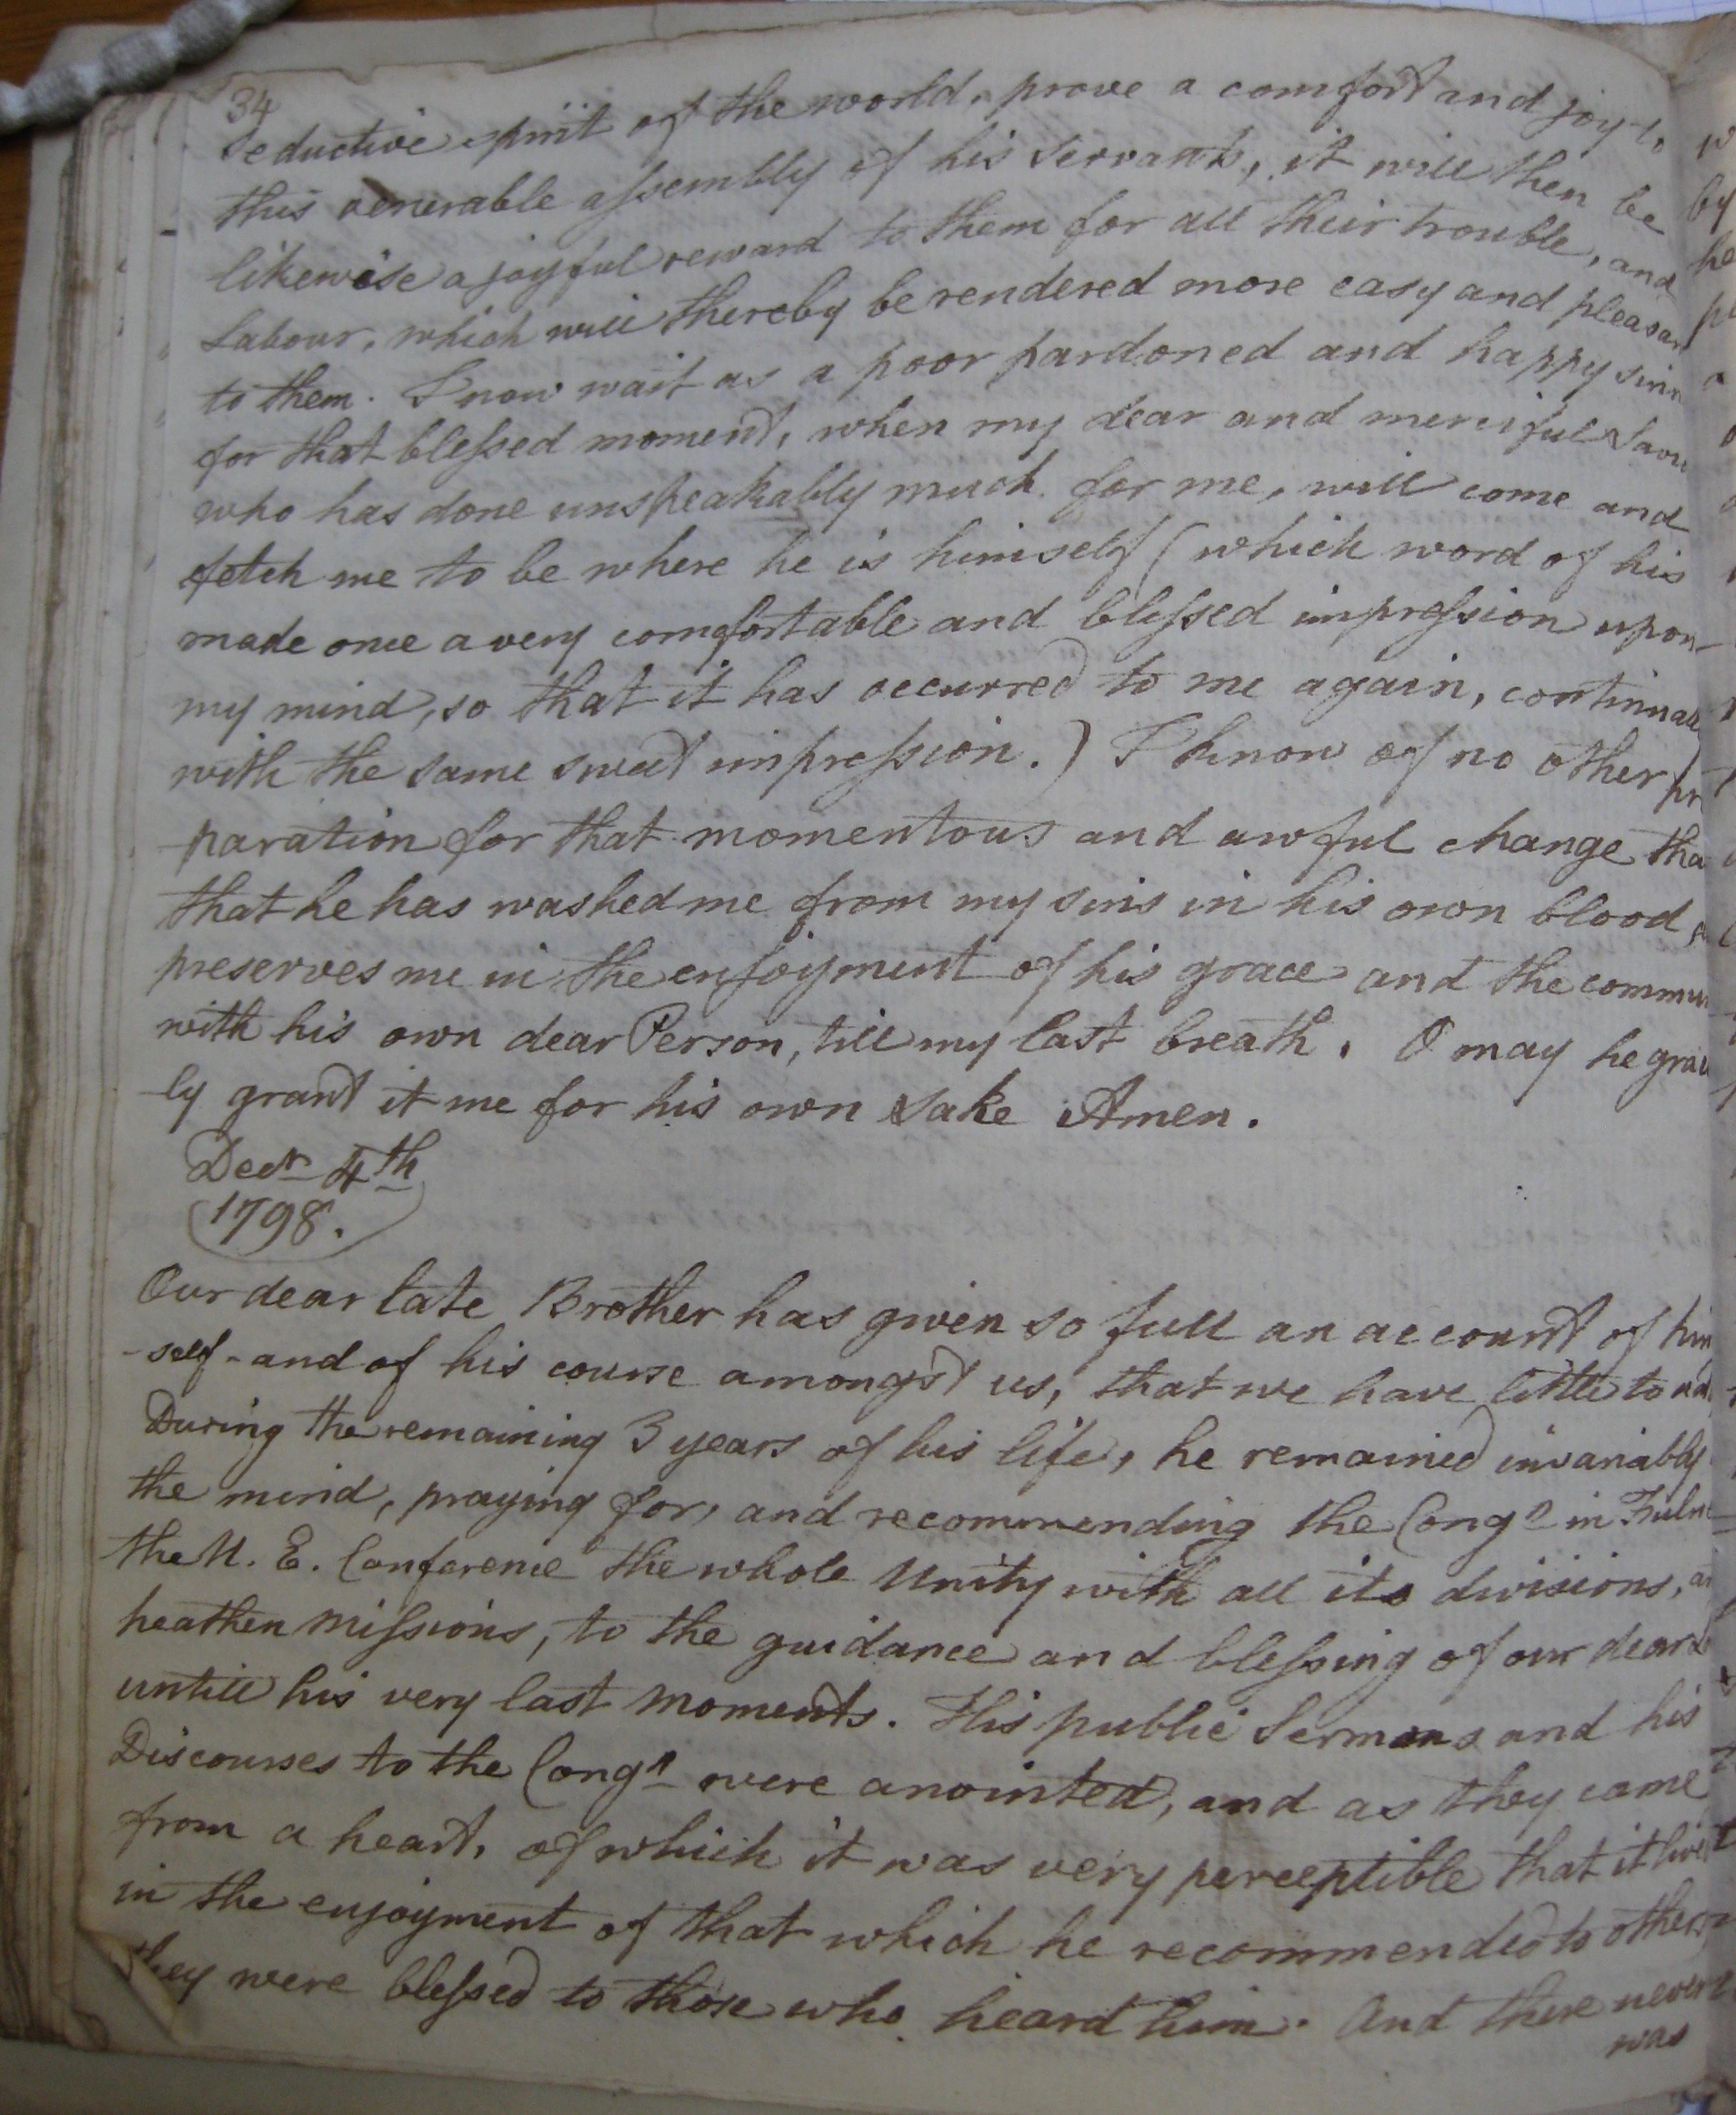 34
seductive spirit of the world, prove a comfort and joy to
this venerable assembly of his Servants, it will then be
likewise a joyful reward to them for all their trouble, and
Labour, which will thereby be rendered more easy and pleasan
to them. I now wait as a poor pardoned and happy sinn
for that blessed moment, when my dear and merciful Savi
who has done unspeakably much for me, will come and
fetch me to be where he is himself (which word of his
made once a very comfortable and blessed impression upon
my mind, so that it has occurred to me again, continual
with the same sweet impression.) I know of no other pr
paration for that momentous and awful change tha
that he has washed me from my sins in his own blood
preserves me in the enjoyment of his grace and the commu
with his own dear Person, till my last breath. O may he graci
ly grant it me for his own Sake Amen.
Decr 4th
1798.
Our dear late Brother has given so full an account of him
-self-and of his course amongst us, that we have little to add
During the remaining 3 years of his life, he remained invariably
the mind, praying for, and recommending the Congn in Fuln
the U. E. Conference the whole Unity with all its divisions, an
heathen Missions, to the guidance and blessing of our dear
untill his very last Moments. His public Sermons and his
Discourses to the Congn were anointed, and as they came
from a heart, of which it was very perceptible that it live
in the enjoyment of that which he recommended to others
they were blessed to those who heard him. And there never
was